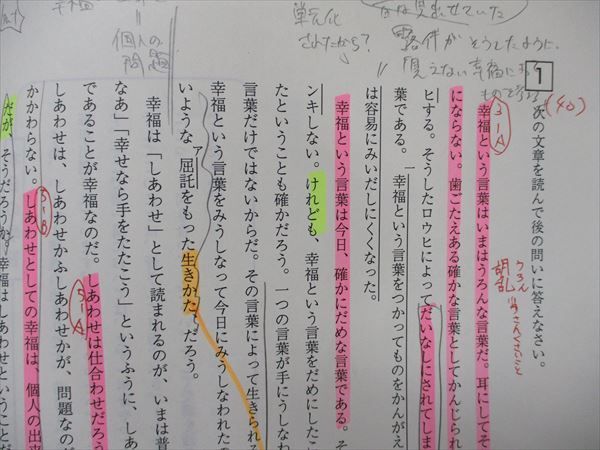 1
(40)
次の文章を読んで後の問いに答えなさい。
胡乱
うろん
幸福という言葉はいまはうろんな言葉だ。耳にしてそ
S1A
にならない。歯ごたえある確かな言葉としてかんじられ
ヒする。そうしたロウヒによってだいなしにされてしま
葉である。
一
幸福という言葉をつかってものをかんがえ
は容易にみいだしにくくなった。
幸福という言葉は今日、確かにだめな言葉である。そ
ンキしない。けれども、幸福という言葉をだめにしたこ
たということも確かだろう。一つの言葉が手にうしなわ
言葉だけではないからだ。その言葉によって生きられる
幸福という言葉をみうしなって今日にみうしなわれたの
ア
いような屈託をもった生きかた、だろう。
幸福は「しあわせ」として読まれるのが、いまは普
なあ」「幸せなら手をたたこう」というふうに、しあ
であることが幸福なのだ。しあわせは仕合わせだろう
S1A
しあわせは、しあわせかふしあわせかが、問題なのだ
かかわらない。しあわせとしての幸福は、個人の出来
S1B
だが、そうだろうか。幸福はしあわせということだ
見えない幸福
路件がそうしたように、
単純化
されたから?
個人の
問題
幸福